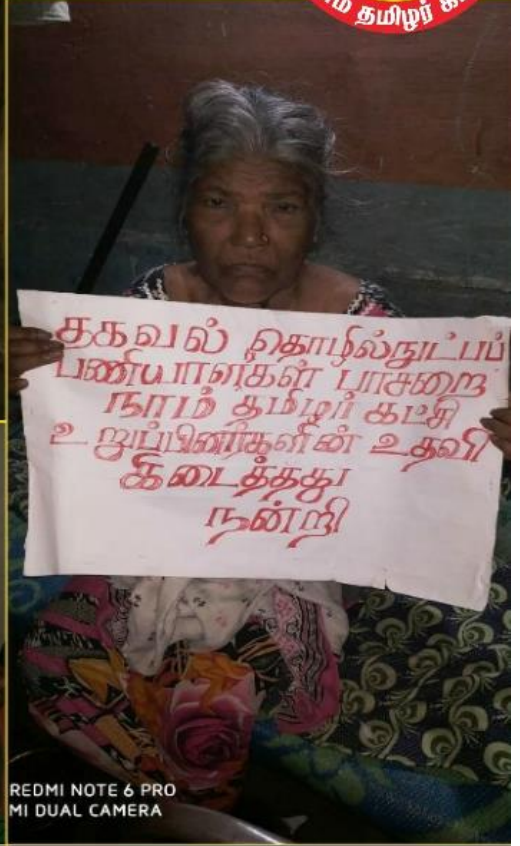 தமிழர்
தகவல் தொழில்நுட்பப்
பணியாளர்கள் பாசறை
நாம் தமிழர் கட்சி
உறுப்பினர்களின் உதவி
கிடைத்தது
நன்றி
REDMI NOTE 6 PRO
MI DUAL CAMERA